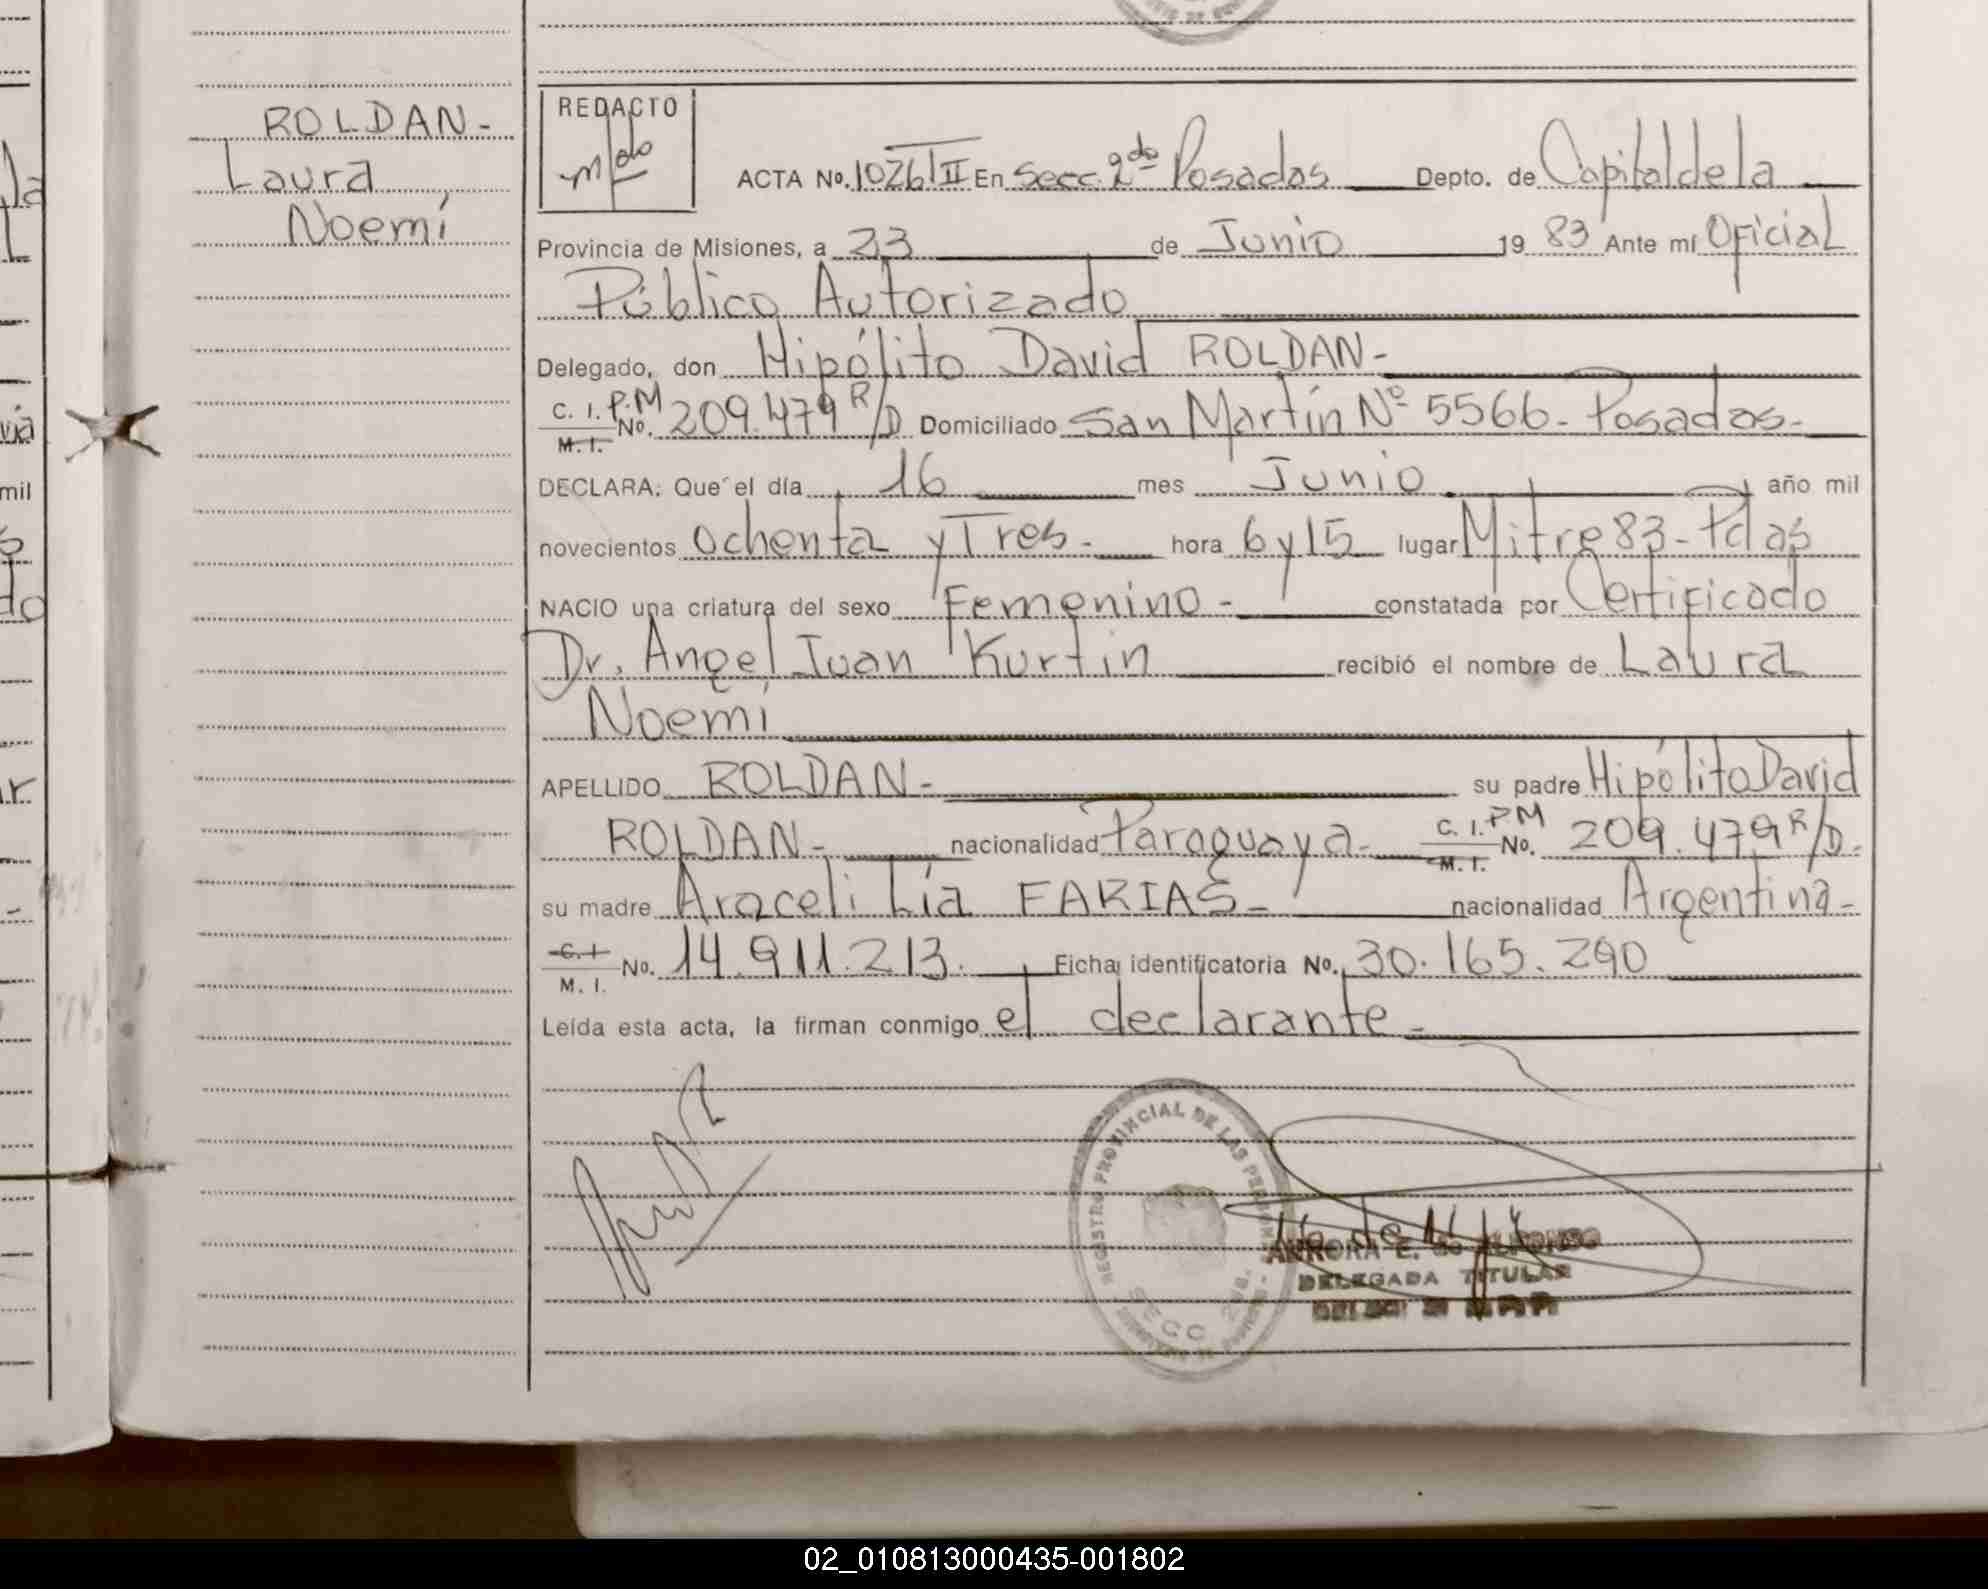 ROLDAN-
Laura
Noemí
REDACTO
ACTA No. 1026 II En Secc. 2do Posadas Depto. de Capital de la
Provincia de Misiones, a 23 de Junio 1983 Ante mí Oficial
Público Autorizado
Delegado, don Hipólito David ROLDAN-
C. I. P.M No. 209.479 R/D Domiciliado San Martín Nº 5566- Posadas-
M. I.
DECLARA: Que el día 16 mes Junio año mil
novecientos ochenta y Tres- hora 6 y 15 lugar Mitre 83- Pdas
NACIO una criatura del sexo Femenino- constatada por Certificado
Dr. Angel Juan Kurtin recibió el nombre de Laura
Noemí
APELLIDO ROLDAN- su padre Hipólito David
ROLDAN- nacionalidad Paraguaya- C. I. PM No. 209.479 R/D-
M. I.
su madre Araceli Lía FARIAS- nacionalidad Argentina-
C. I No. 14.911.213. Ficha identificatoria No. 30.165.290
M. I.
Leída esta acta, la firman conmigo el declarante-
REGISTRO PROVINCIAL DE LAS PERSONAS
SECC
DELEGADA TITULAR
02_010813000435-001802